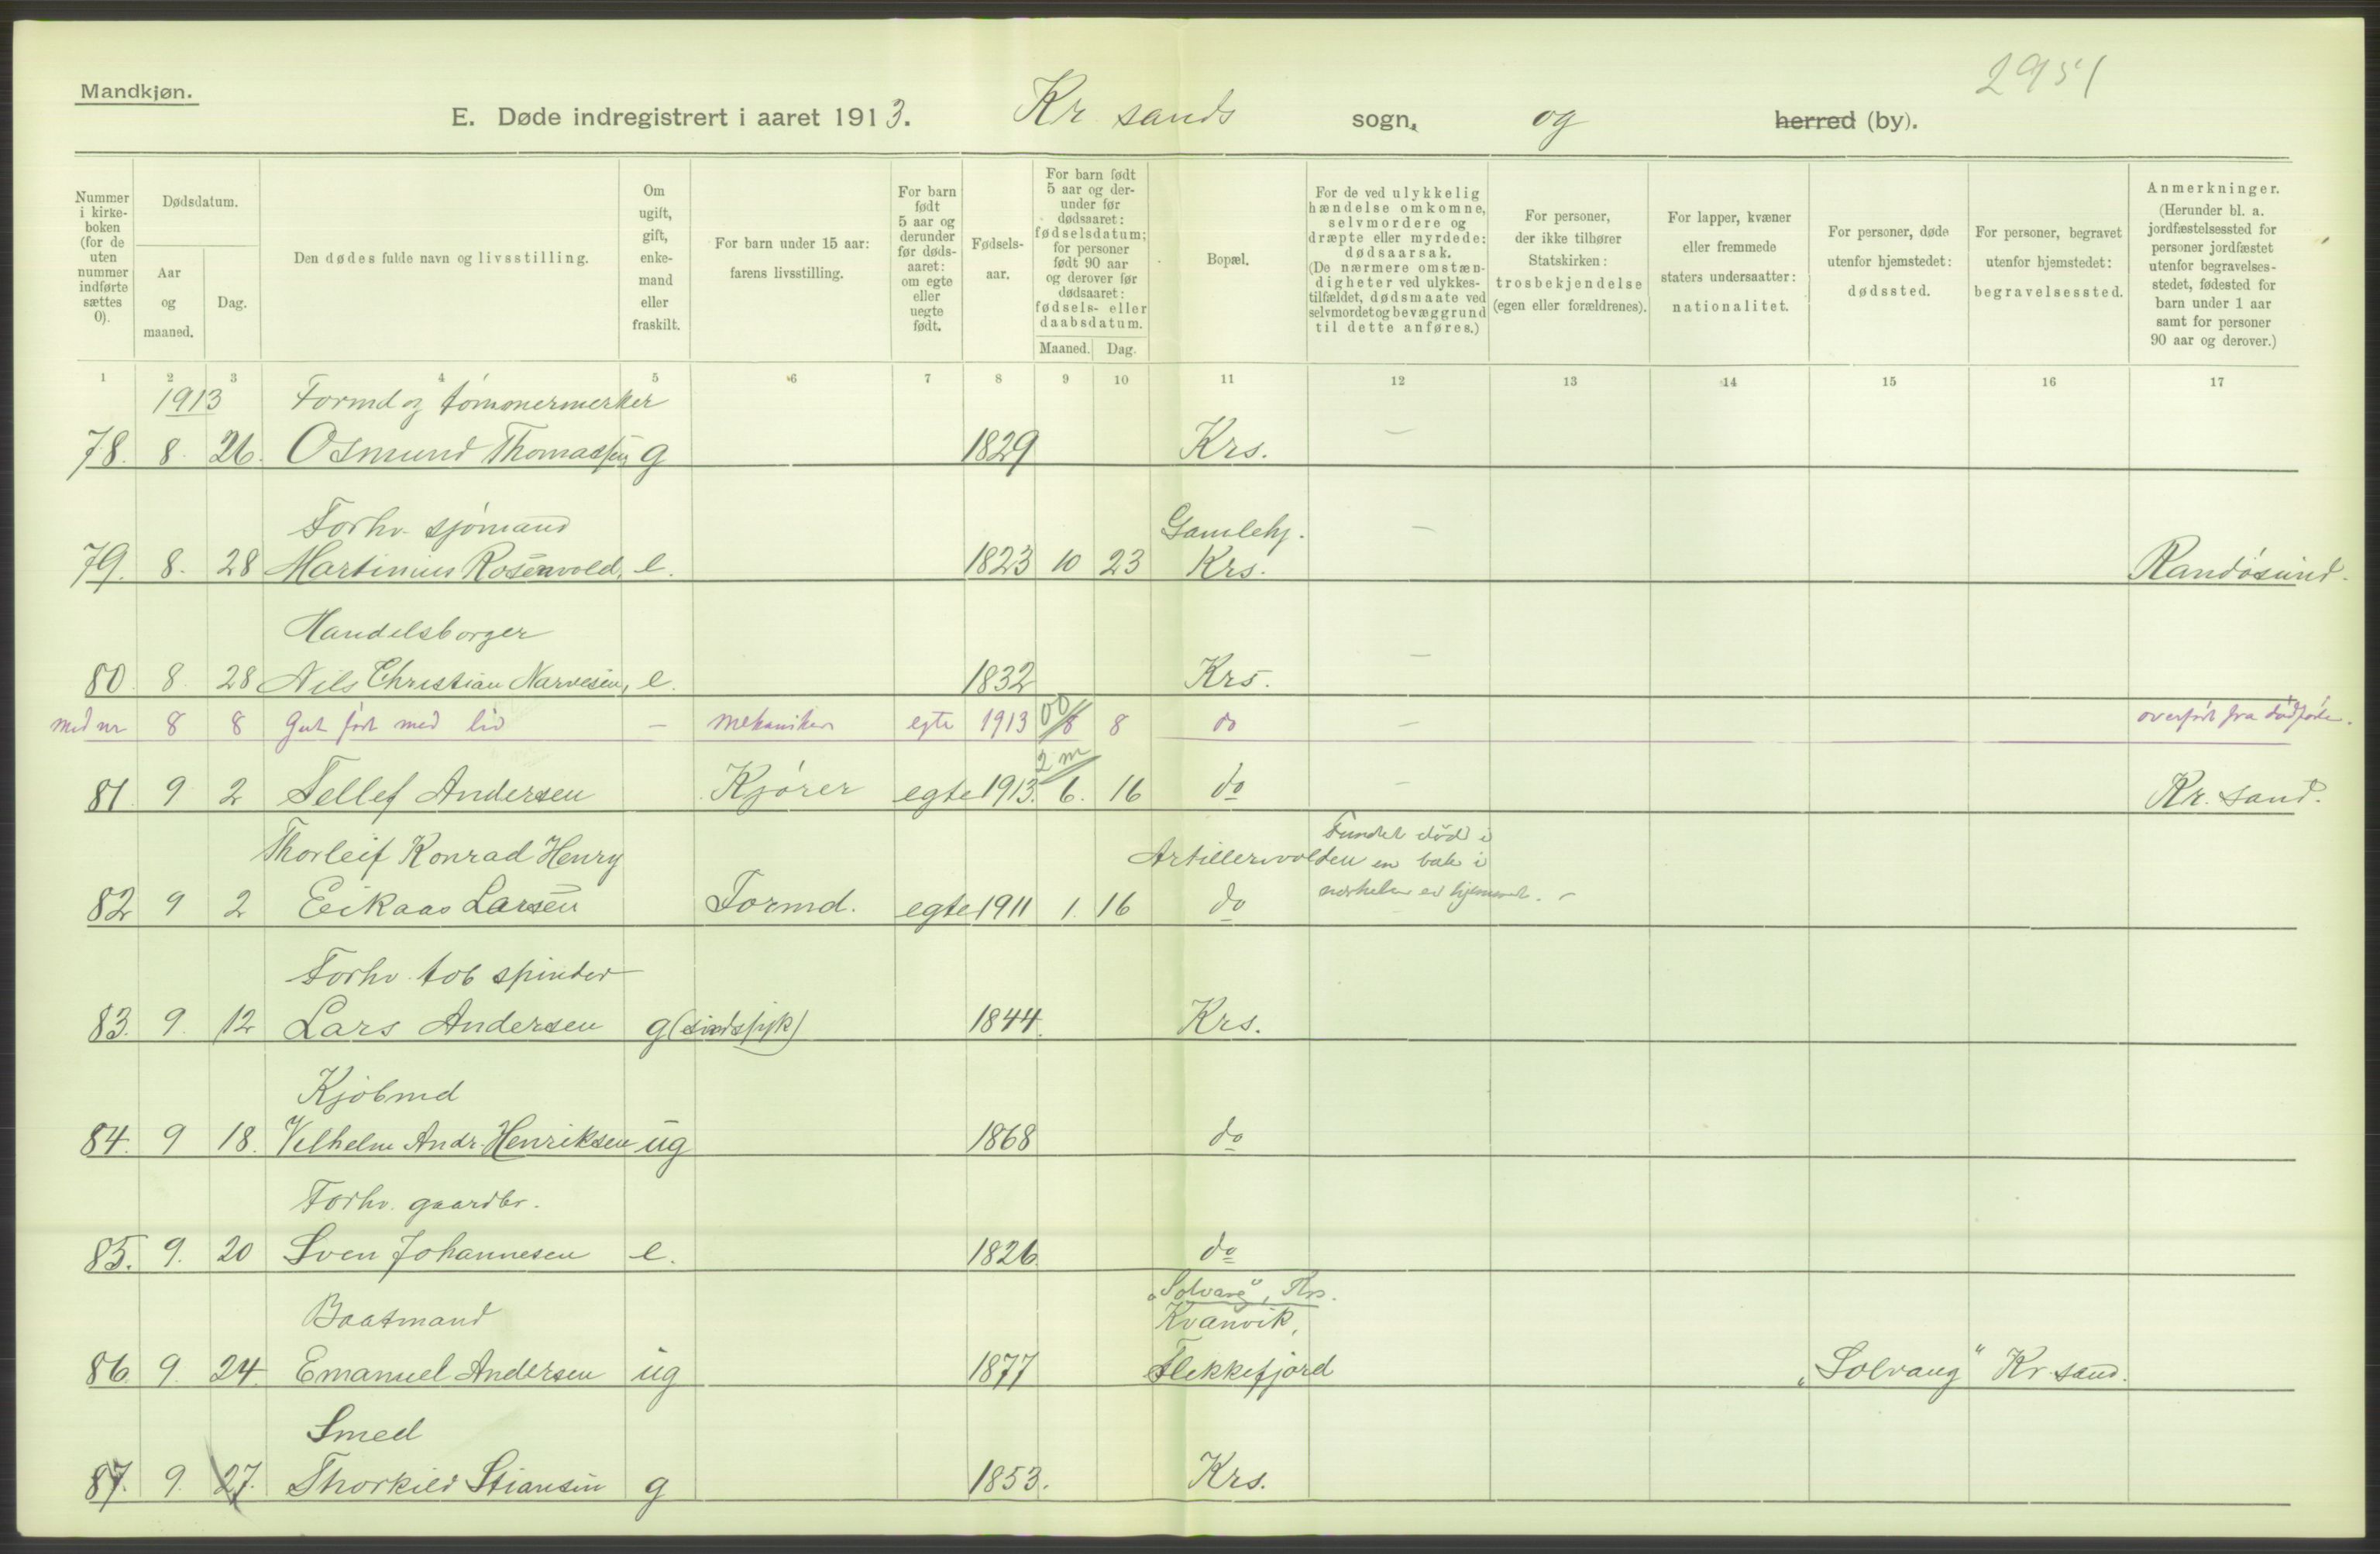 2951
Mandkjøn.
E. Døde indregistrert i aaret 1913. Kr sands sogn, og herred (by).
Nummer i kirkeboken (for de uten nummer indførte sættes 0).
Dødsdatum.
Aar og maaned.
Dag.
Den dødes fulde navn og livsstilling.
Om ugift, gift, enkemand eller fraskilt.
For barn under 15 aar: farens livsstilling.
For barn født 5 aar og derunder før dødsaaret: om egte eller uegte født.
Fødselsaar.
For barn født 5 aar og derunder før dødsaaret: fødselsdatum; for personer født 90 aar og derover før dødsaaret: fødsels- eller daabsdatum.
Maaned. Dag.
Bopæl.
For de ved ulykkelig hændelse omkomne, selvmordere og dræpte eller myrdede: dødsaarsak. (De nærmere omstændigheter ved ulykkestilfældet, dødsmaate ved selvmordet og bevæggrund til dette anføres.)
For personer, der ikke tilhører Statskirken: trosbekjendelse (egen eller forældrenes).
For lapper, kvæner eller fremmede staters undersaatter: nationalitet.
For personer, døde utenfor hjemstedet: dødssted.
For personer, begravet utenfor hjemstedet: begravelsessted.
Anmerkninger. (Herunder bl. a. jordfæstelsessted for personer jordfæstet utenfor begravelsesstedet, fødested for barn under 1 aar samt for personer 90 aar og derover.)
1 2 3 4 5 6 7 8 9 10 11 12 13 14 15 16 17
1913 Formd og tømmermerker
78. 8. 26. Osmund Thomassen g 1829 Krs. —
Forhv. sjømand Gamlehj. —
79. 8. 28 Martinius Rosenvold, e. 1823 10 23 Krs. Randøsund.
Handelsborger
80. 8. 28 Nils Christian Narvesen, e. 1832 Krs. —
med nr 8 8 Gut født med liv — mekaniker egte 1913 00/8 8 do — overført fra dødfødte.
2 m
81 9 2 Tellef Andersen Kjører egte 1913. 6. 16 do — Kr. sand.
Thorleif Konrad Henry Artillerivolden Fundet død i en bæk i
82 9 2 Eikaas Larsen Formd. egte 1911 1. 16 do nærheten av hjemmet. —
Forhv. tob spinder
83. 9. 12 Lars Andersen g (sindssyk) 1844. Krs.
Kjøbmd
84. 9 18. Vilhelm Andr. Henriksen ug 1868 do
Forhv. gaardbr.
85. 9. 20 Sven Johannesen e. 1826. do
"Solvang", Krs.
Baatsmand Kvanvik,
86. 9. 24 Emanuel Andersen ug 1877 Flekkefjord „Solvang" Kr. sand.
Smed
87. 9. 27. Thorkild Stiansen g 1853. Krs.